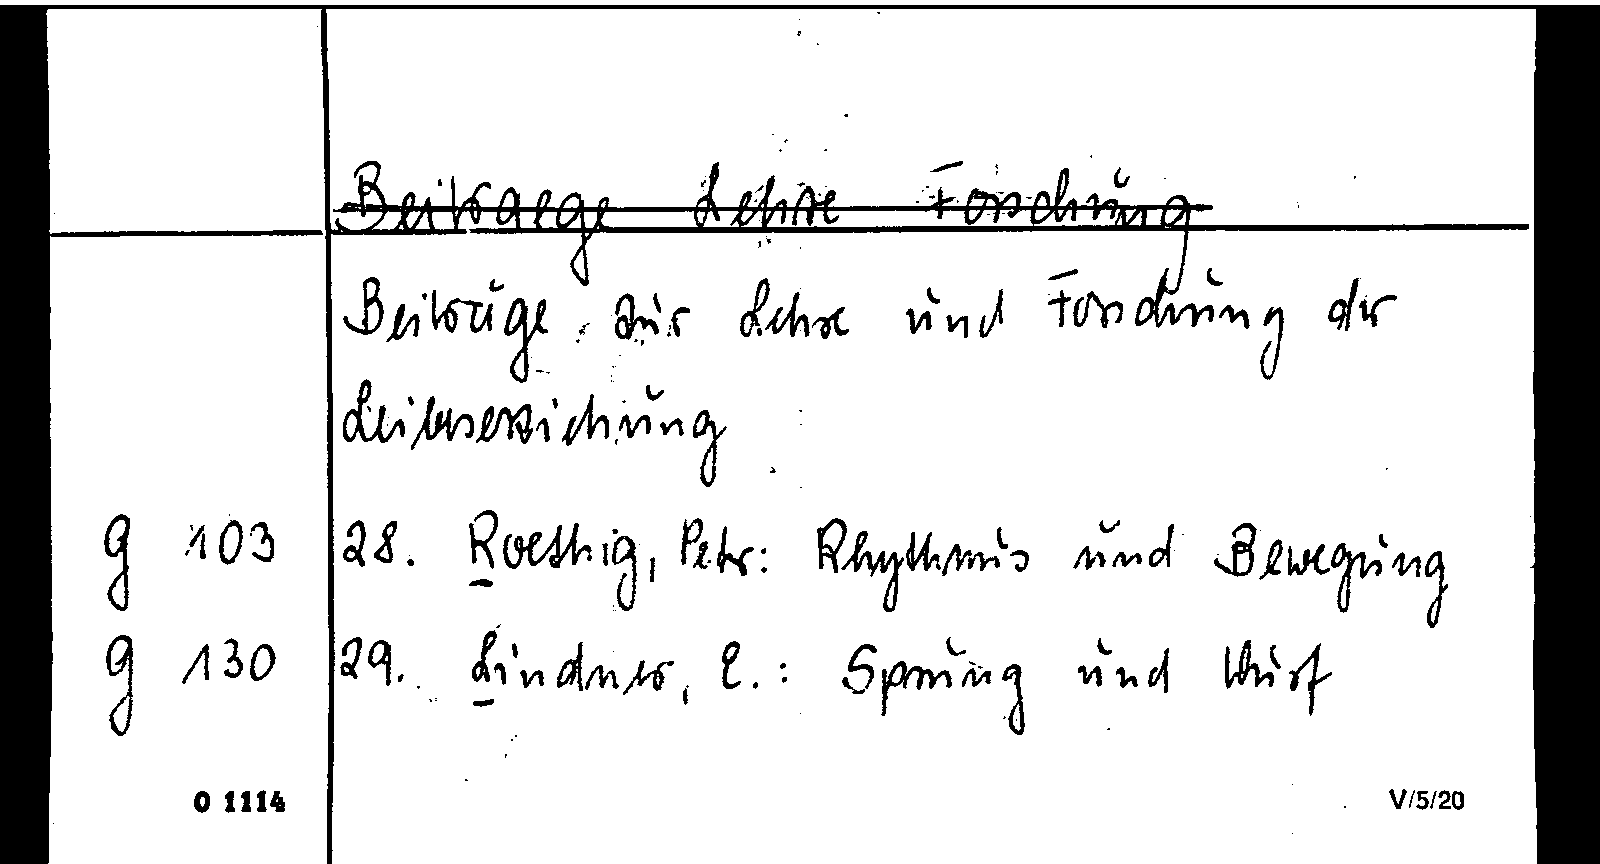 Beitraege Lehre Forschung
Beiträge zur Lehre und Forschung der
Leibeserziehung
g 103 28. Roethig, Peter: Rhythmus und Bewegung
g 130 29. Lindner, E.: Sprung und Wurf
0 1114 V/5/20